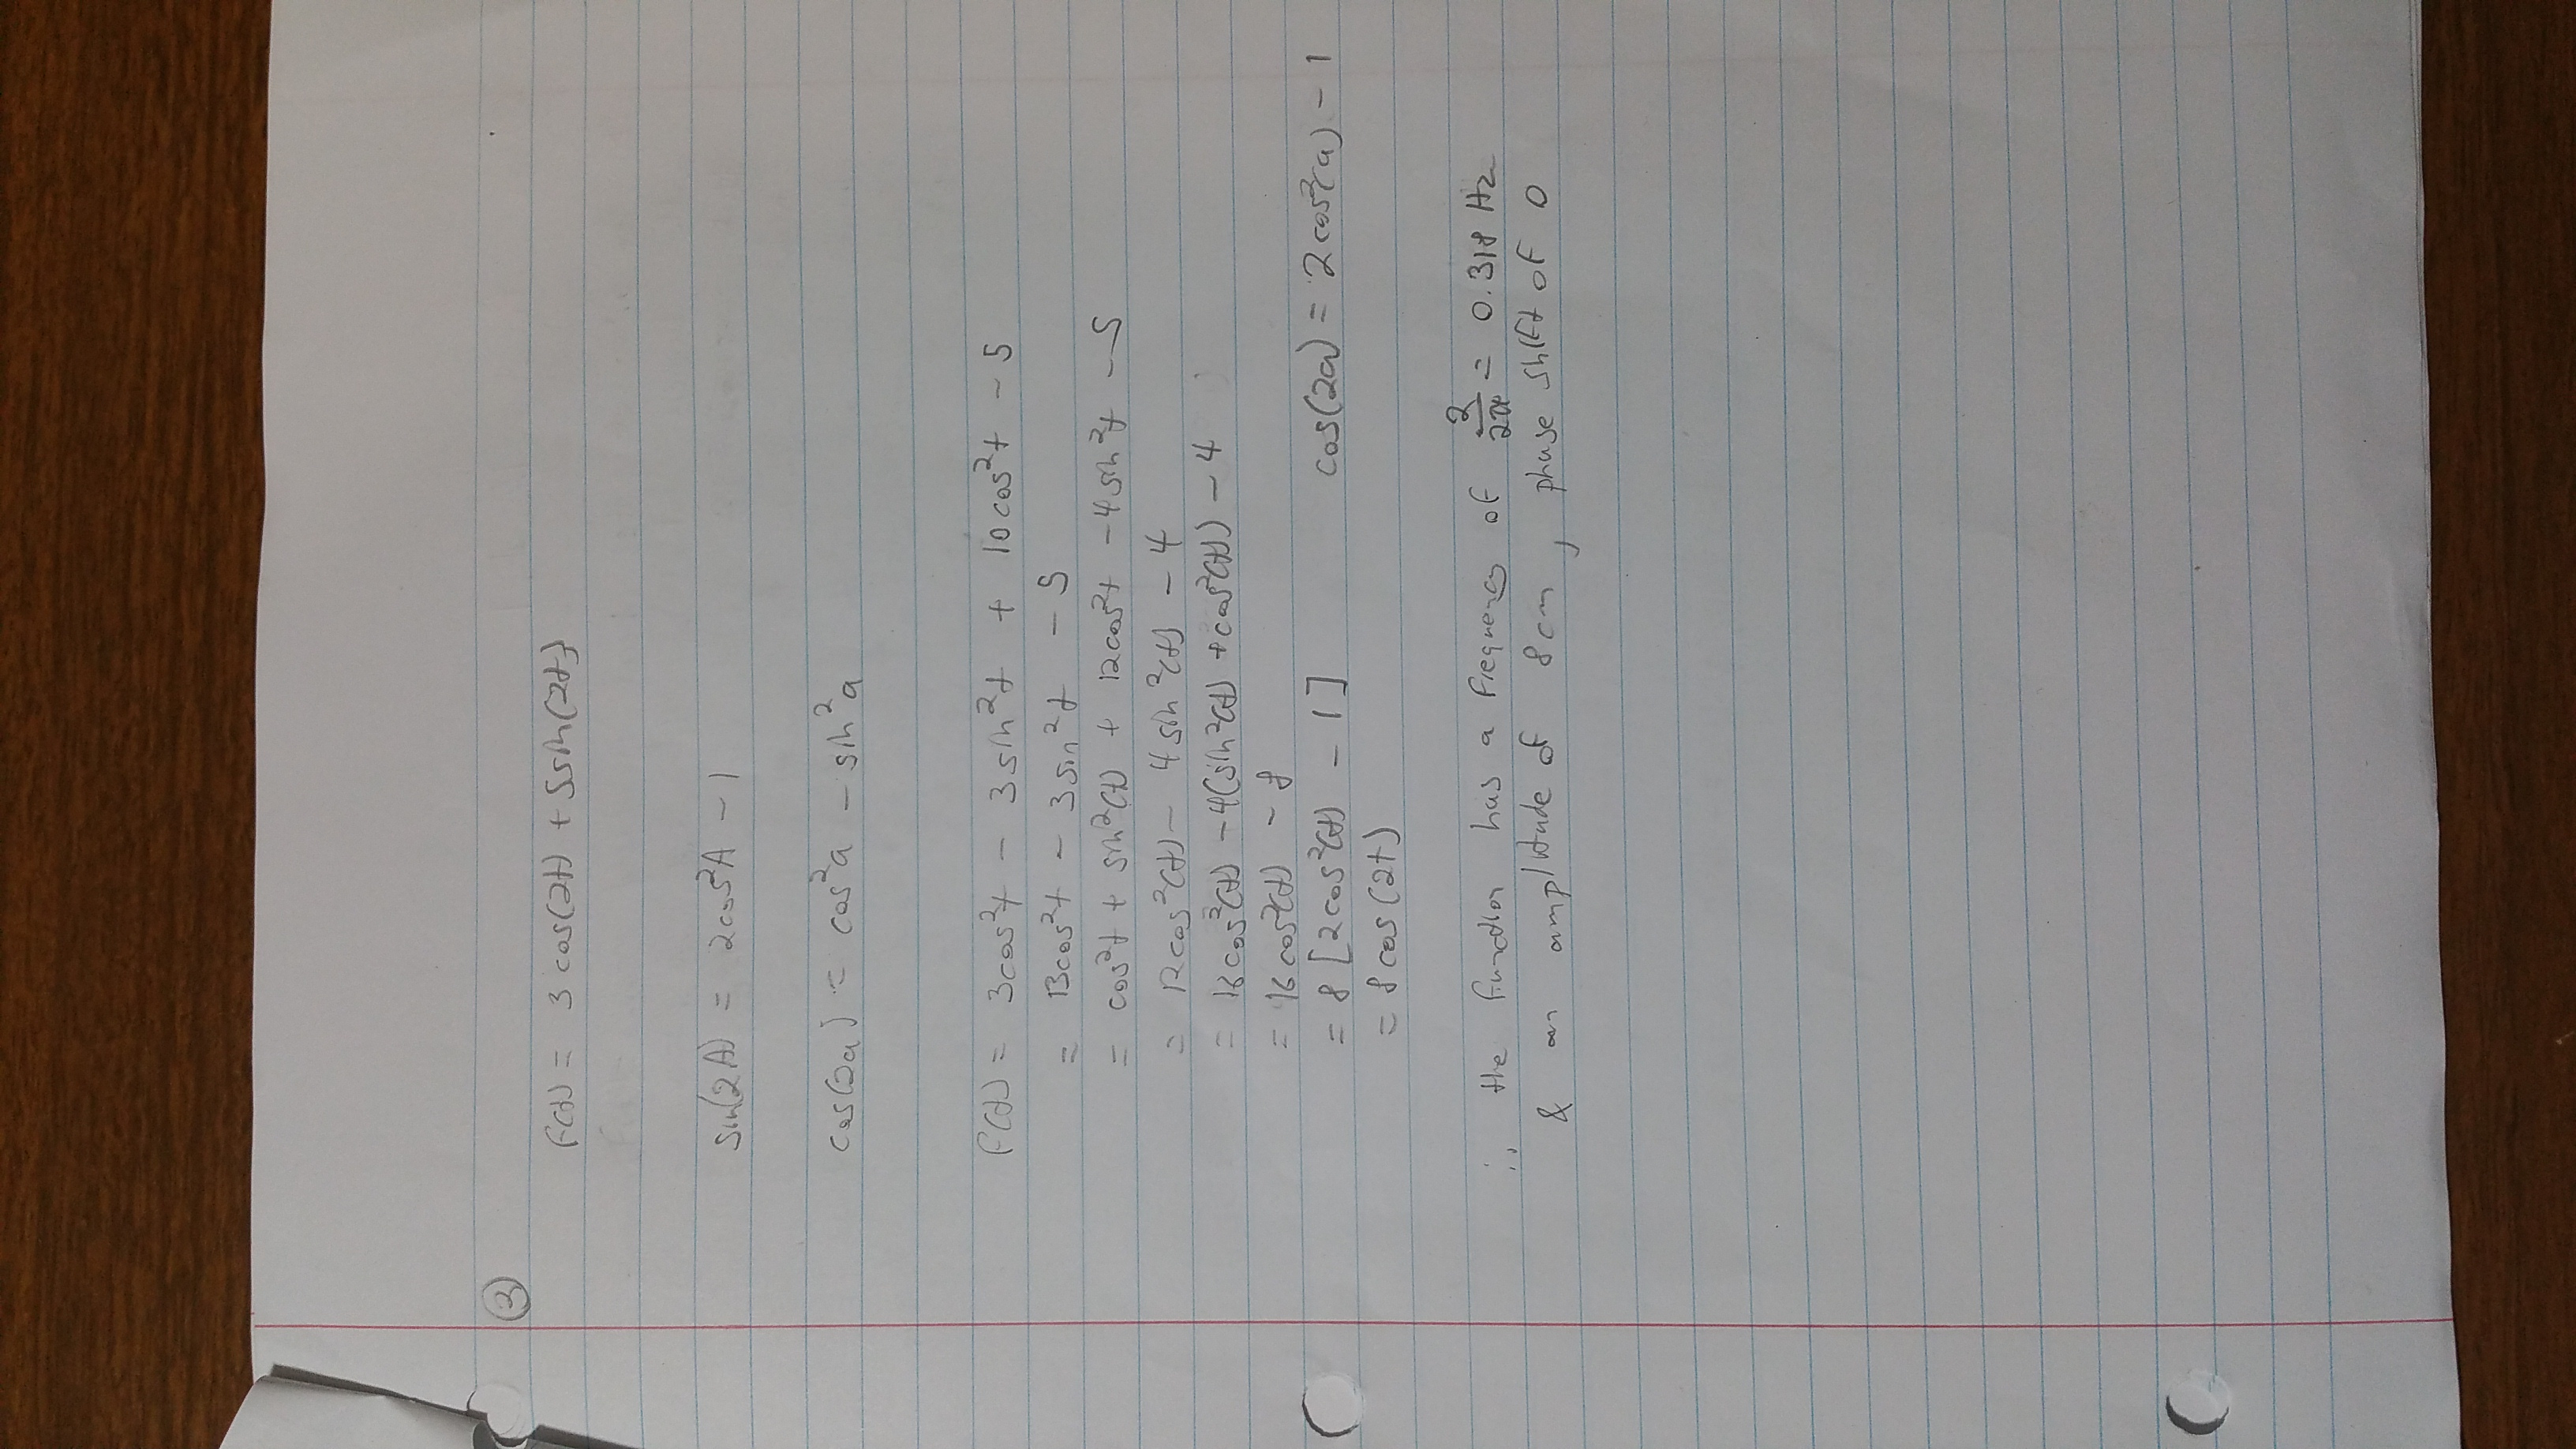 ③
f(t) = 3cos(2t) + 5sin(2t)
sin(2A) = 2cos²A - 1
cos(2a) = cos²a - sin²a
f(t) = 3cos²t - 3sin²t + 10cos²t - 5
= 13cos²t - 3sin²t - 5
= cos²t + sin²(t) + 12cos²t - 4sin²t - 5
= 12cos²(t) - 4sin²(t) - 4
= 16cos²(t) - 4(sin²(t) + cos²(t)) - 4
= 16cos²(t) - 8
= 8[2cos²(t) - 1] cos(2a) = 2cos²(a) - 1
= 8cos(2t)
∴ the function has a frequency of 2/2π = 0.318 Hz
& an amplitude of 8cm, phase shift of 0